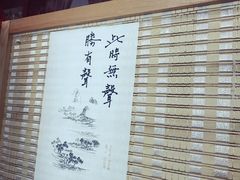 此時無聲
勝有聲